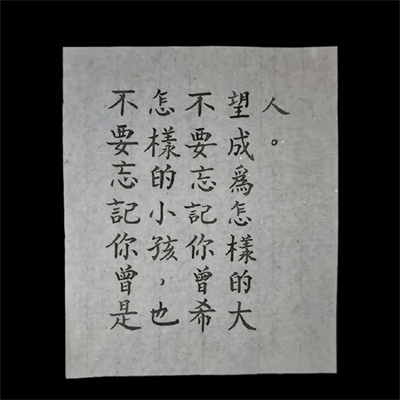 不要忘記你曾是
怎樣的小孩，也
不要忘記你曾希
望成爲怎樣的大
人。